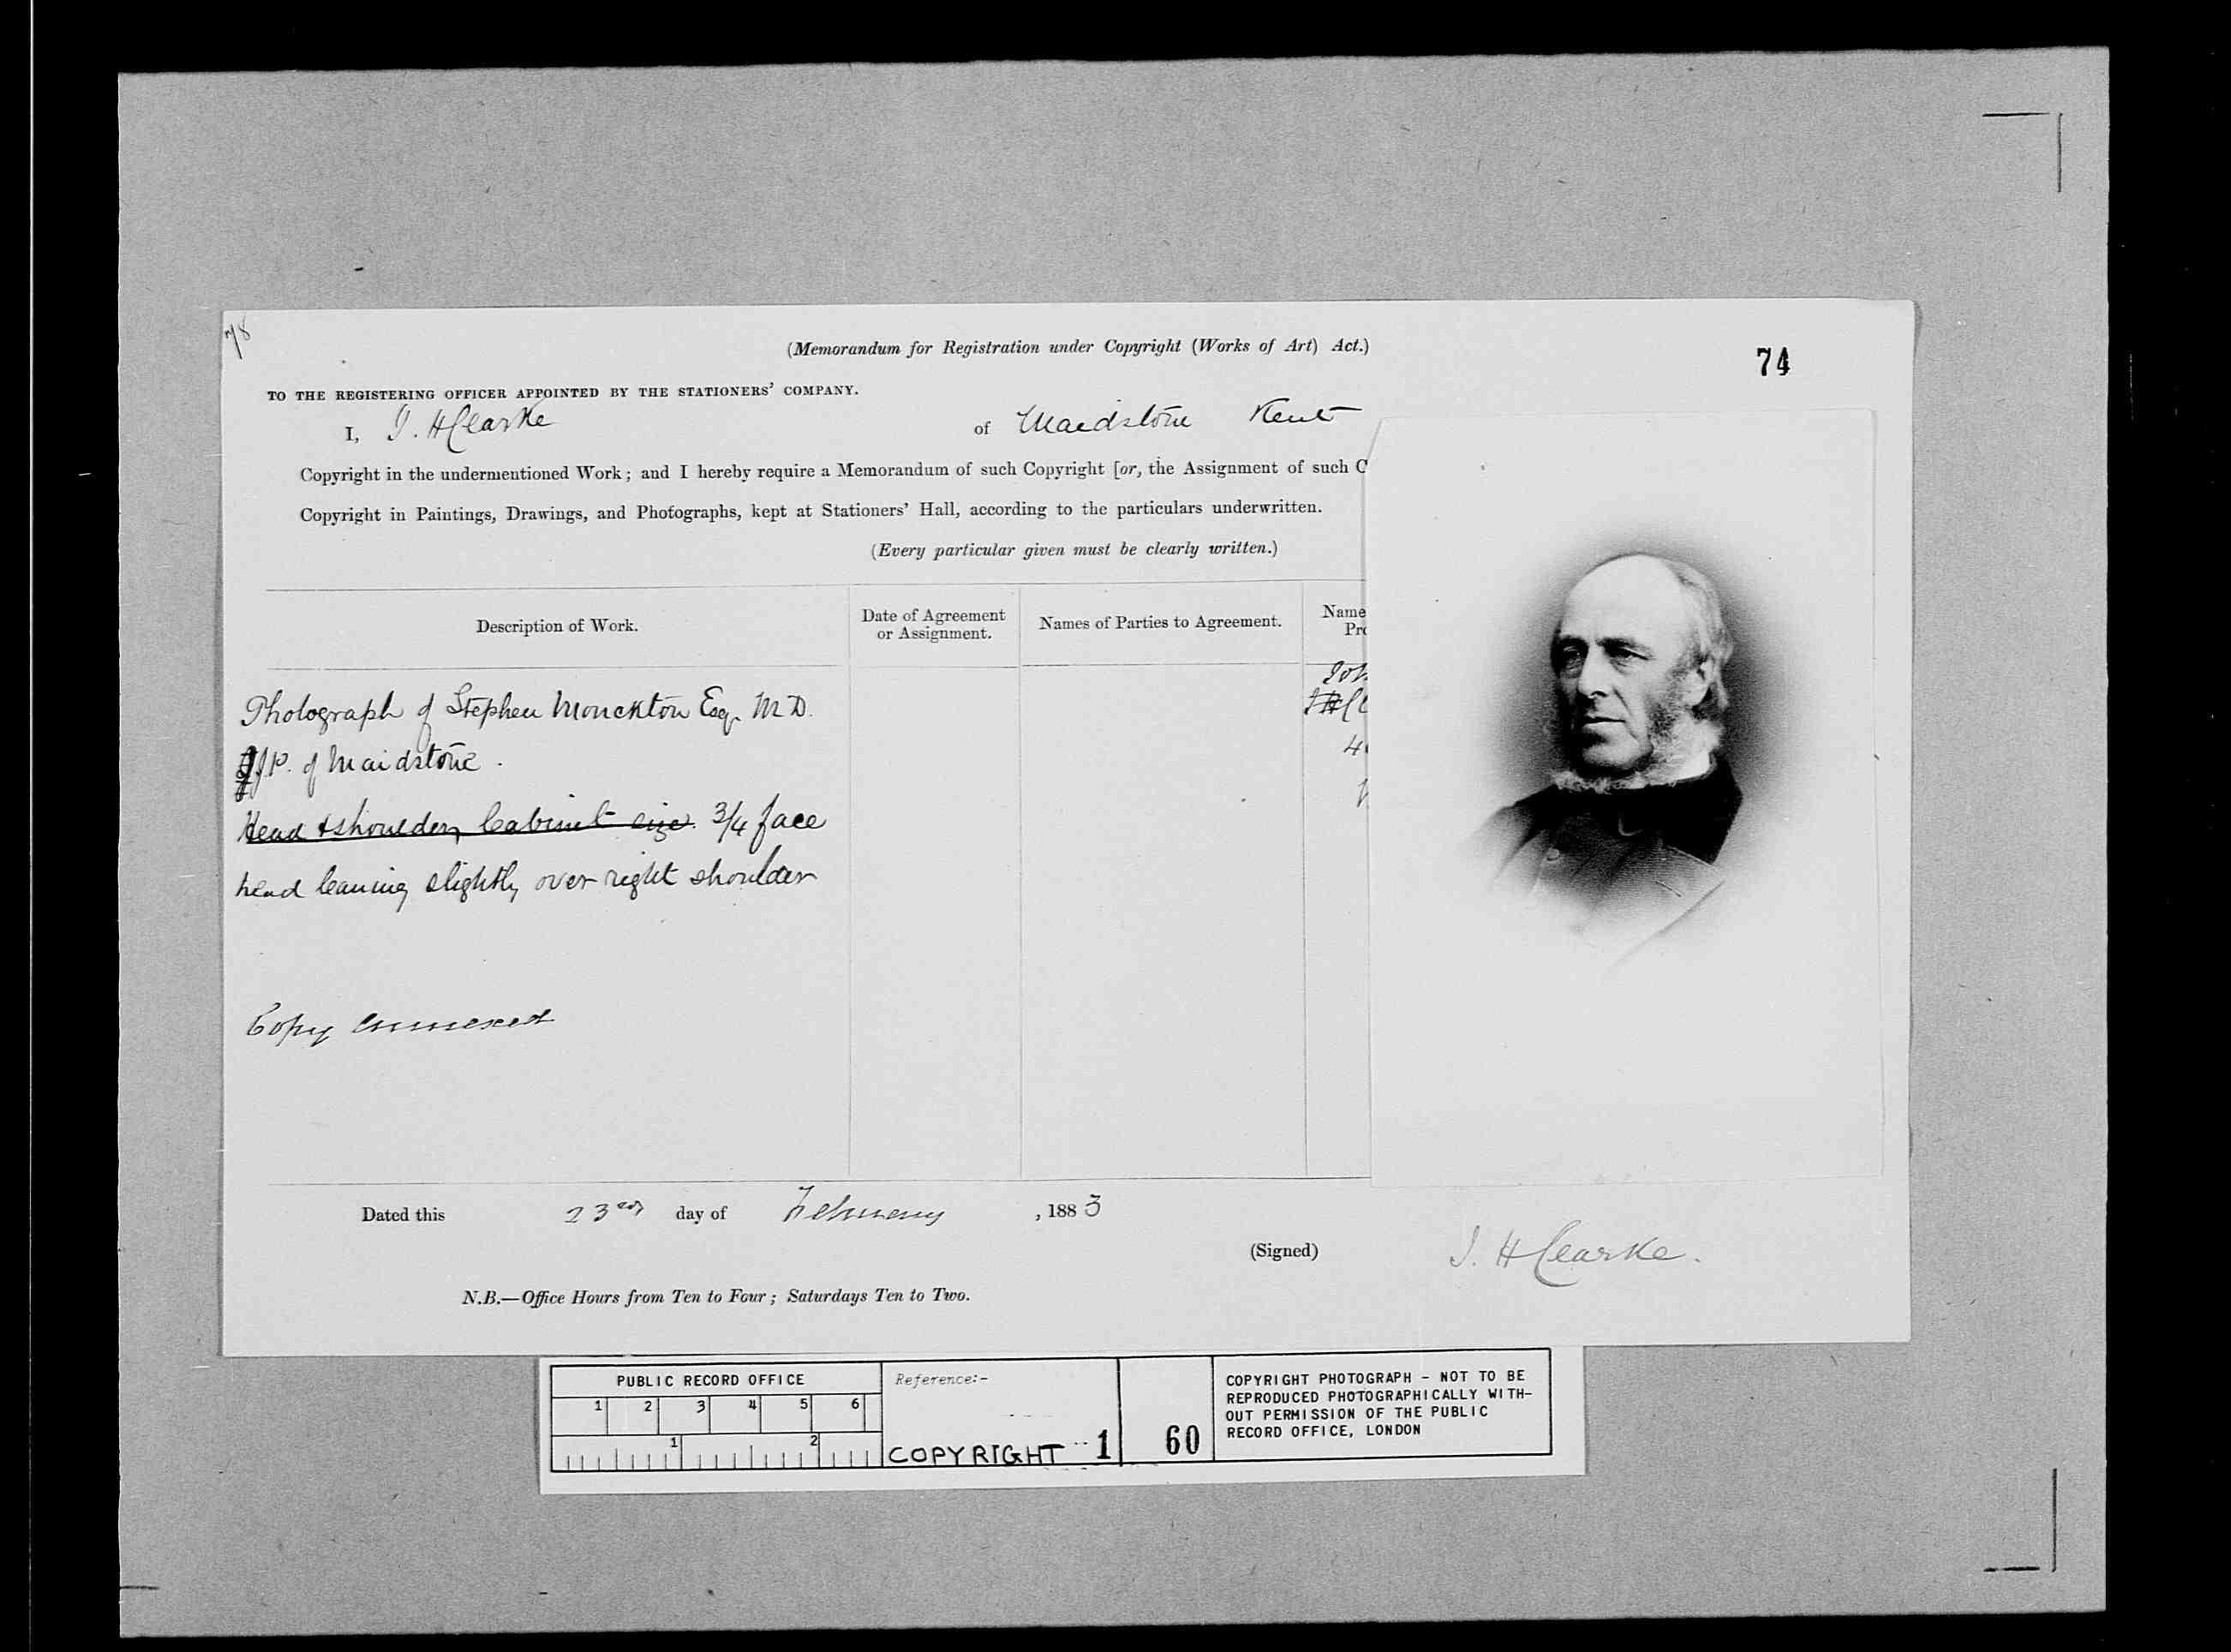 78
(Memorandum for Registration under Copyright (Works of Art) Act.)
74
TO THE REGISTERING OFFICER APPOINTED BY THE STATIONERS' COMPANY.
I, J. H Clarke of Maidstone Kent
Copyright in the undermentioned Work; and I hereby require a Memorandum of such Copyright [or, the Assignment of such C
Copyright in Paintings, Drawings, and Photographs, kept at Stationers' Hall, according to the particulars underwritten.
(Every particular given must be clearly written.)
Description of Work.
Date of Agreement
or Assignment.
Names of Parties to Agreement.
Name
Pro
Joh
J H Cl
4
Photograph of Stephen Monckton Esq. M.D.
J.P. of Maidstone.
Head & shoulders, Cabinet size. 3/4 face
head leaning slightly over right shoulder
Copy annexed
Dated this 23rd day of February, 1883
(Signed) J. H Clarke.
N.B.—Office Hours from Ten to Four; Saturdays Ten to Two.
PUBLIC RECORD OFFICE
1 2 3 4 5 6
1 2
Reference:-
COPYRIGHT 1 60
COPYRIGHT PHOTOGRAPH - NOT TO BE
REPRODUCED PHOTOGRAPHICALLY WITH-
OUT PERMISSION OF THE PUBLIC
RECORD OFFICE, LONDON